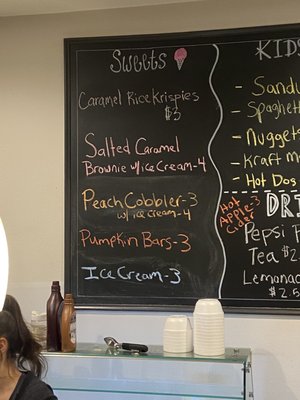 Sweets
Caramel Rice Krispies
$3
Salted Caramel
Brownie w/ice Cream-4
Peach Cobbler-3
w/ice Cream-4
Pumpkin Bars-3
Ice Cream-3
KID
- Sand
- Spaghett
- Nuggets
- Kraft M
- Hot Dos
DRI
Hot
Apple-3
Cider
Pepsi P
Tea $2
Lemonad
$2.5